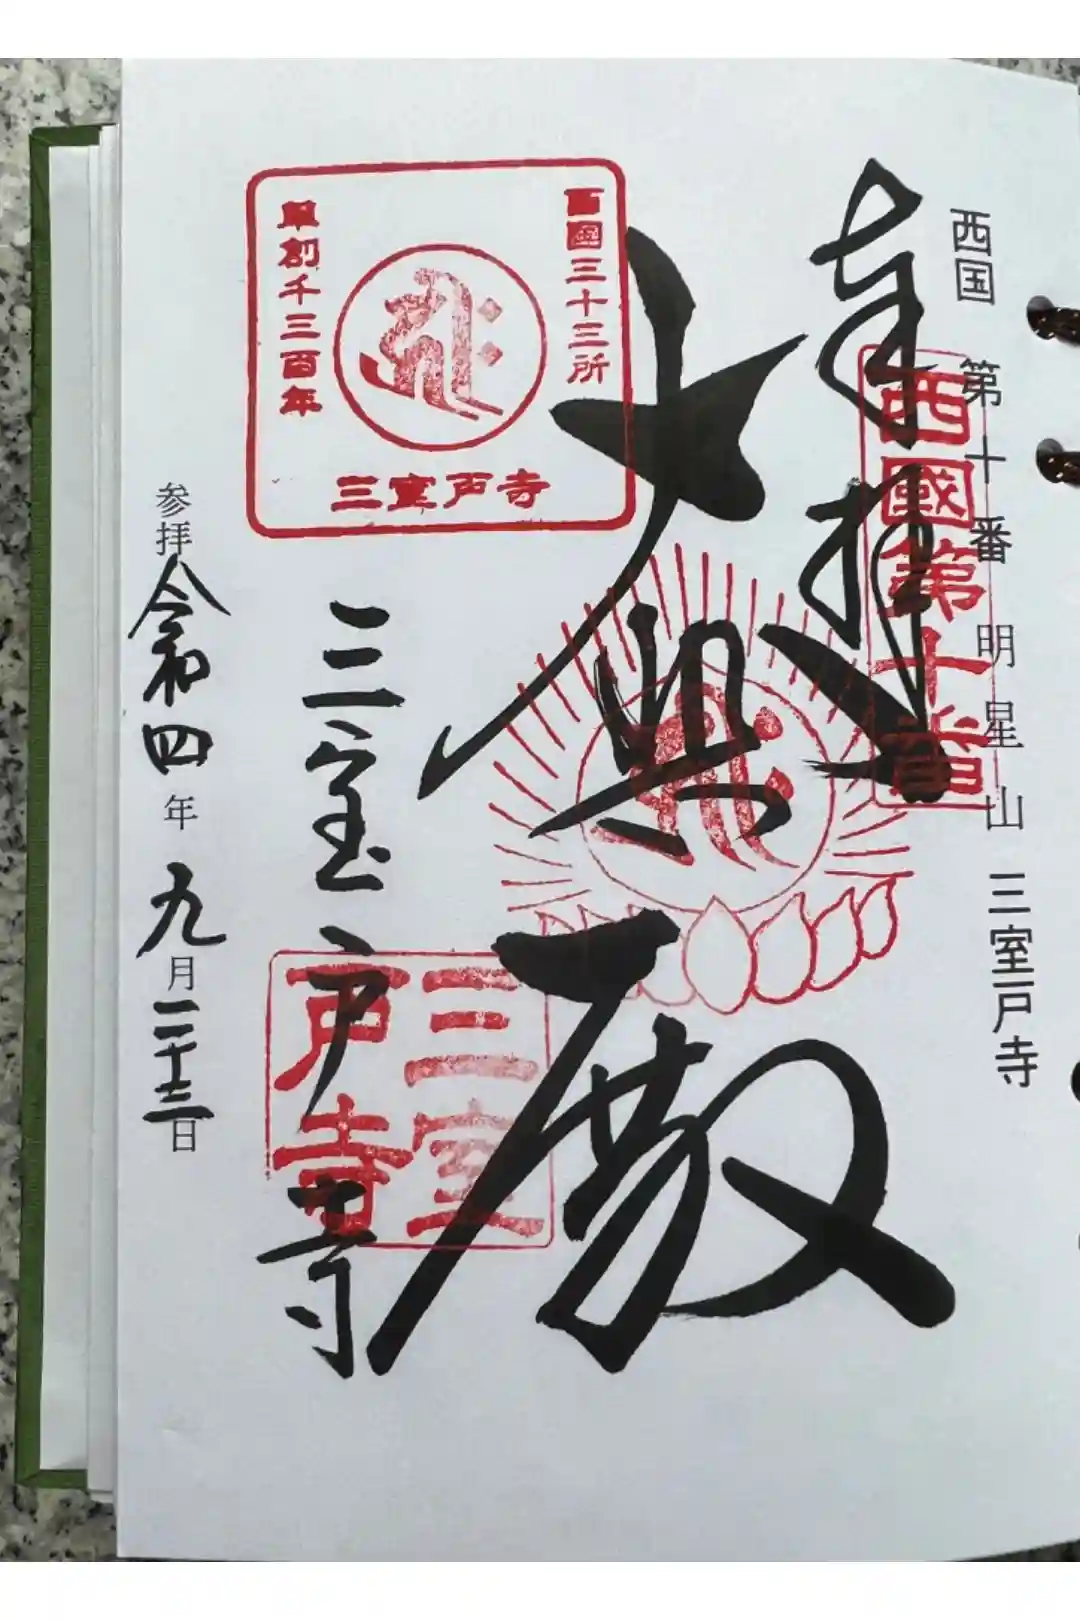 西国 第十番 明星山 三室戸寺
奉拝
西國第十番
大悲殿
西國三十三所
草創千三百年
三室戸寺
三室戸寺
三室戸寺
参拝 令和四年 九月二十三日